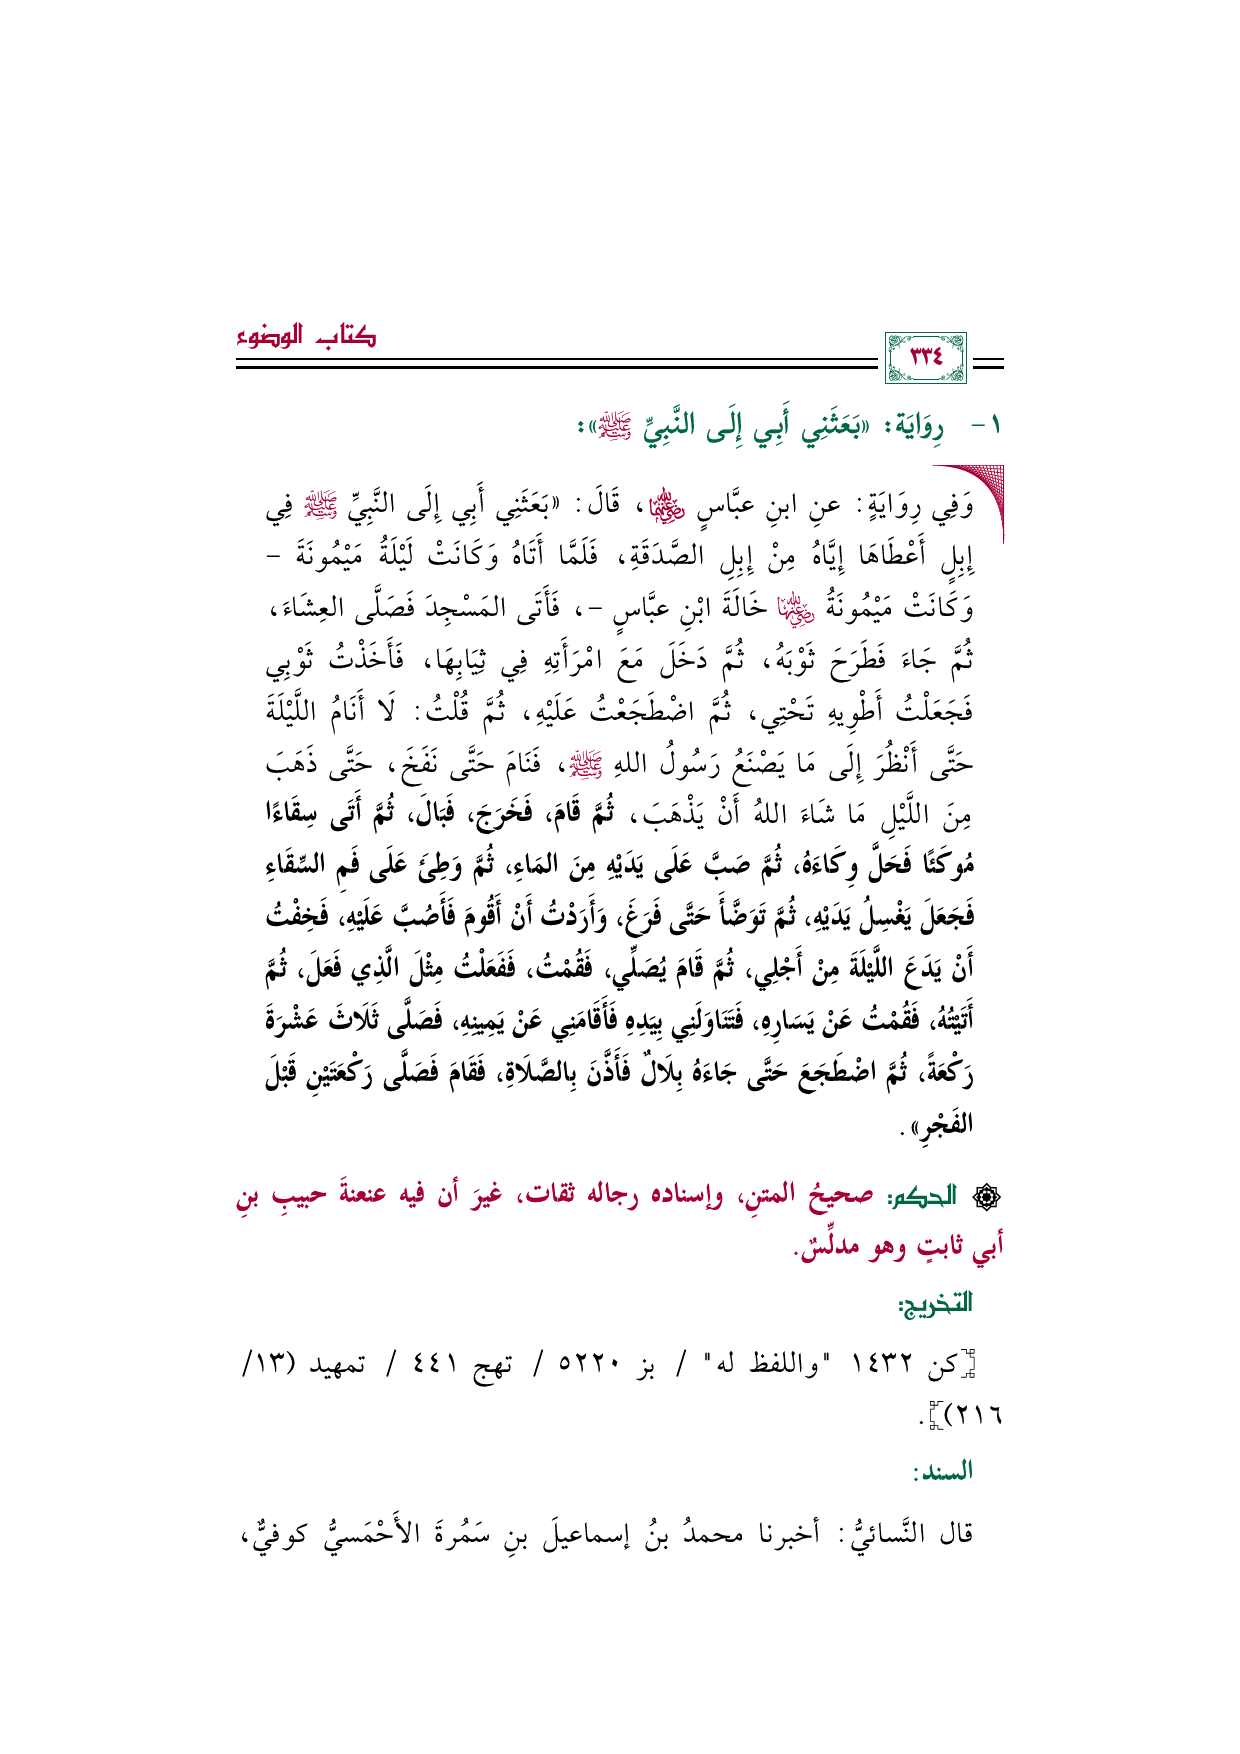 كتاب الوضوء
٣٣٤
١- رِوَايَة: «بَعَثَنِي أَبِي إِلَى النَّبِيِّ ﷺ»:
وَفِي رِوَايَةٍ: عنِ ابنِ عبَّاسٍ رضي الله عنهما، قَالَ: «بَعَثَنِي أَبِي إِلَى النَّبِيِّ ﷺ فِي
إِبِلٍ أَعْطَاهَا إِيَّاهُ مِنْ إِبِلِ الصَّدَقَةِ، فَلَمَّا أَتَاهُ وَكَانَتْ لَيْلَةُ مَيْمُونَةَ –
وَكَانَتْ مَيْمُونَةُ رضي الله عنها خَالَةَ ابْنِ عبَّاسٍ –، فَأَتَى المَسْجِدَ فَصَلَّى العِشَاءَ،
ثُمَّ جَاءَ فَطَرَحَ ثَوْبَهُ، ثُمَّ دَخَلَ مَعَ امْرَأَتِهِ فِي ثِيَابِهَا، فَأَخَذْتُ ثَوْبِي
فَجَعَلْتُ أَطْوِيهِ تَحْتِي، ثُمَّ اضْطَجَعْتُ عَلَيْهِ، ثُمَّ قُلْتُ: لَا أَنَامُ اللَّيْلَةَ
حَتَّى أَنْظُرَ إِلَى مَا يَصْنَعُ رَسُولُ اللهِ ﷺ، فَنَامَ حَتَّى نَفَخَ، حَتَّى ذَهَبَ
مِنَ اللَّيْلِ مَا شَاءَ اللهُ أَنْ يَذْهَبَ، ثُمَّ قَامَ، فَخَرَجَ، فَبَالَ، ثُمَّ أَتَى سِقَاءًا
مُوكَئًا فَحَلَّ وِكَاءَهُ، ثُمَّ صَبَّ عَلَى يَدَيْهِ مِنَ المَاءِ، ثُمَّ وَطِئَ عَلَى فَمِ السِّقَاءِ
فَجَعَلَ يَغْسِلُ يَدَيْهِ، ثُمَّ تَوَضَّأَ حَتَّى فَرَغَ، وَأَرَدْتُ أَنْ أَقُومَ فَأَصُبَّ عَلَيْهِ، فَخِفْتُ
أَنْ يَدَعَ اللَّيْلَةَ مِنْ أَجْلِي، ثُمَّ قَامَ يُصَلِّي، فَقُمْتُ، فَفَعَلْتُ مِثْلَ الَّذِي فَعَلَ، ثُمَّ
أَتَيْتُهُ، فَقُمْتُ عَنْ يَسَارِهِ، فَتَنَاوَلَنِي بِيَدِهِ فَأَقَامَنِي عَنْ يَمِينِهِ، فَصَلَّى ثَلَاثَ عَشْرَةَ
رَكْعَةً، ثُمَّ اضْطَجَعَ حَتَّى جَاءَهُ بِلَالٌ فَأَذَّنَ بِالصَّلَاةِ، فَقَامَ فَصَلَّى رَكْعَتَيْنِ قَبْلَ
الفَجْرِ».
الحكم: صحيحُ المتنِ، وإسناده رجاله ثقات، غيرَ أن فيه عنعنةَ حبيبِ بنِ
أبي ثابتٍ وهو مدلِّسٌ.
التخريج:
[كن ١٤٣٢ "واللفظ له" / بز ٥٢٢٠ / تهج ٤٤١ / تمهيد (١٣/
٢١٦)].
السند:
قال النَّسائيُّ: أخبرنا محمدُ بنُ إسماعيلَ بنِ سَمُرةَ الأَحْمَسيُّ كوفيٌّ،